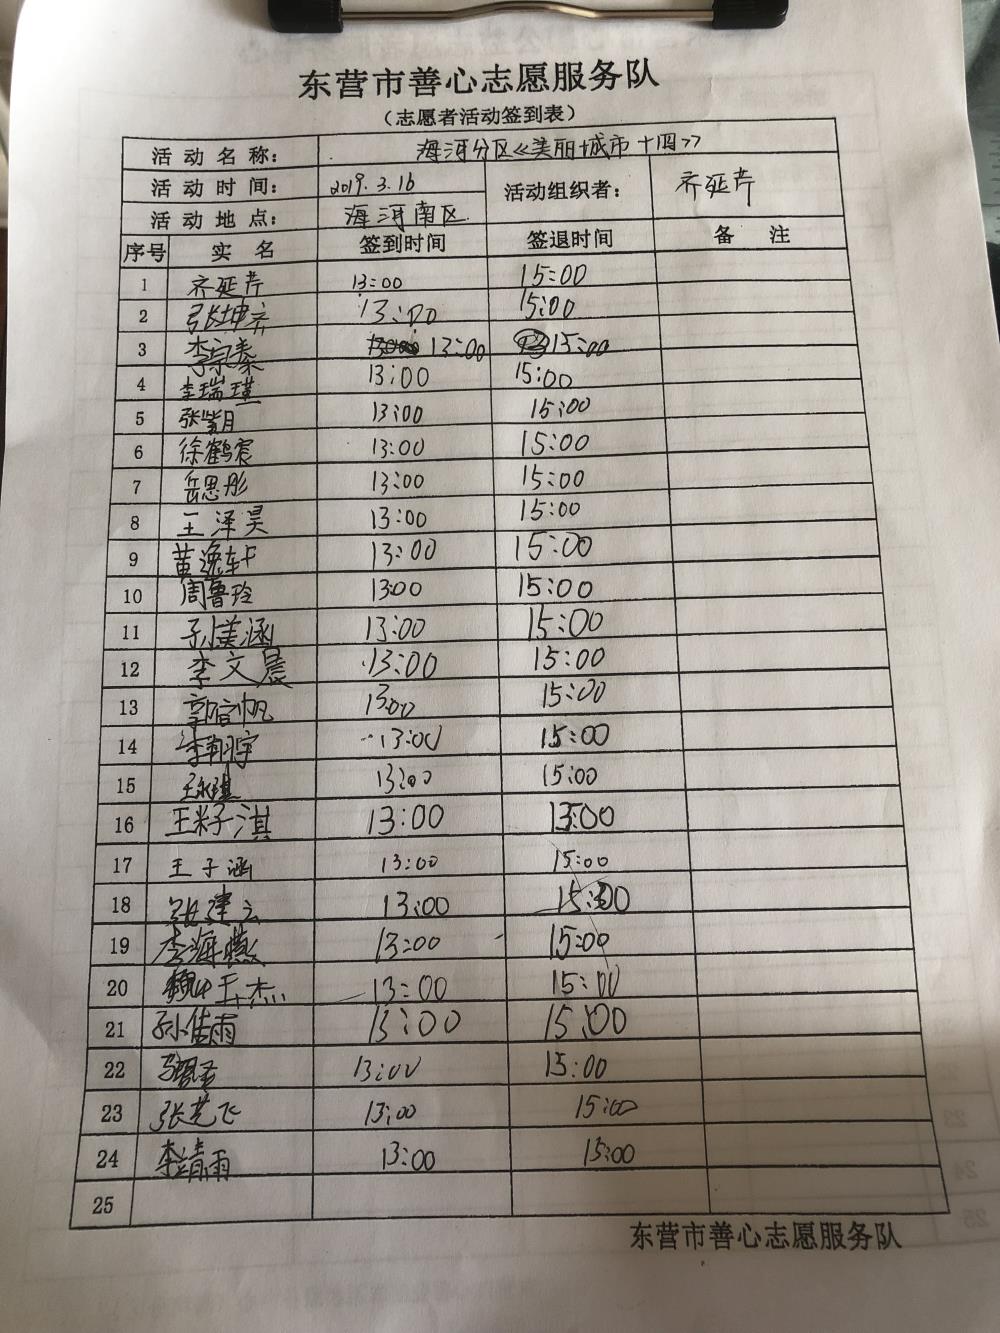 东营市善心志愿服务队
（志愿者活动签到表）
活动名称： 海河分区《美丽城市十四》
活动时间： 2019.3.16 活动组织者： 齐延芹
活动地点： 海河南区
序号 实名 签到时间 签退时间 备注
1 齐延芹 13:00 15:00
2 张坤齐 13:00 15:00
3 李宗秦 13:00 15:00
4 李瑞瑾 13:00 15:00
5 张紫月 13:00 15:00
6 徐鹤宸 13:00 15:00
7 岳思彤 13:00 15:00
8 王泽昊 13:00 15:00
9 黄逸轩 13:00 15:00
10 周鲁玲 13:00 15:00
11 孙美涵 13:00 15:00
12 李文晨 13:00 15:00
13 郭信帆 13:00 15:00
14 李翔宇 13:00 15:00
15 13:00 15:00
16 王籽淇 13:00 15:00
17 王子涵 13:00 15:00
18 张建云 13:00 15:00
19 李海燕 13:00 15:00
20 魏玉杰 13:00 15:00
21 孙佳雨 13:00 15:00
22 13:00 15:00
23 张艺飞 13:00 15:00
24 李靖雨 13:00 15:00
25
东营市善心志愿服务队